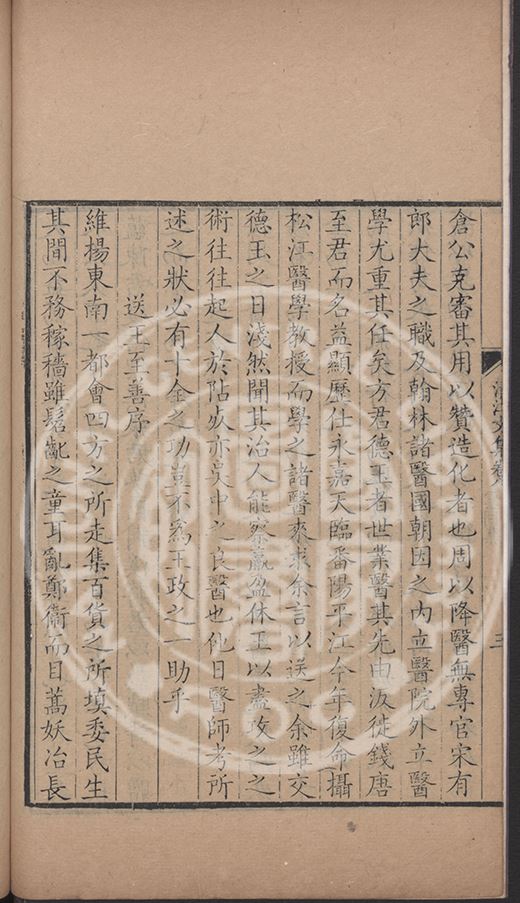 倉公克審其用以贊造化者也周以降醫無專官宋有
郎大夫之職及翰林諸醫國朝因之內立醫院外立醫
學尤重其任矣方君德玉者世業醫其先由汳徙錢唐
至君而名益顯歷仕永嘉天臨番陽平江今年復命攝
松江醫學教授而學之諸醫來求余言以送之余雖交
德玉之日淺然聞其治人能察羸盈休王以盡攻之之
術往往起人於阽亦吳中之良醫也他日醫師考所
述之狀必有十全之功豈不為王政之一助乎
送王至善序
維楊東南一都會四方之所走集百貨之所填委民生
其間不務稼穡雖髫齔之童耳亂鄭衛而目蒿妖冶長